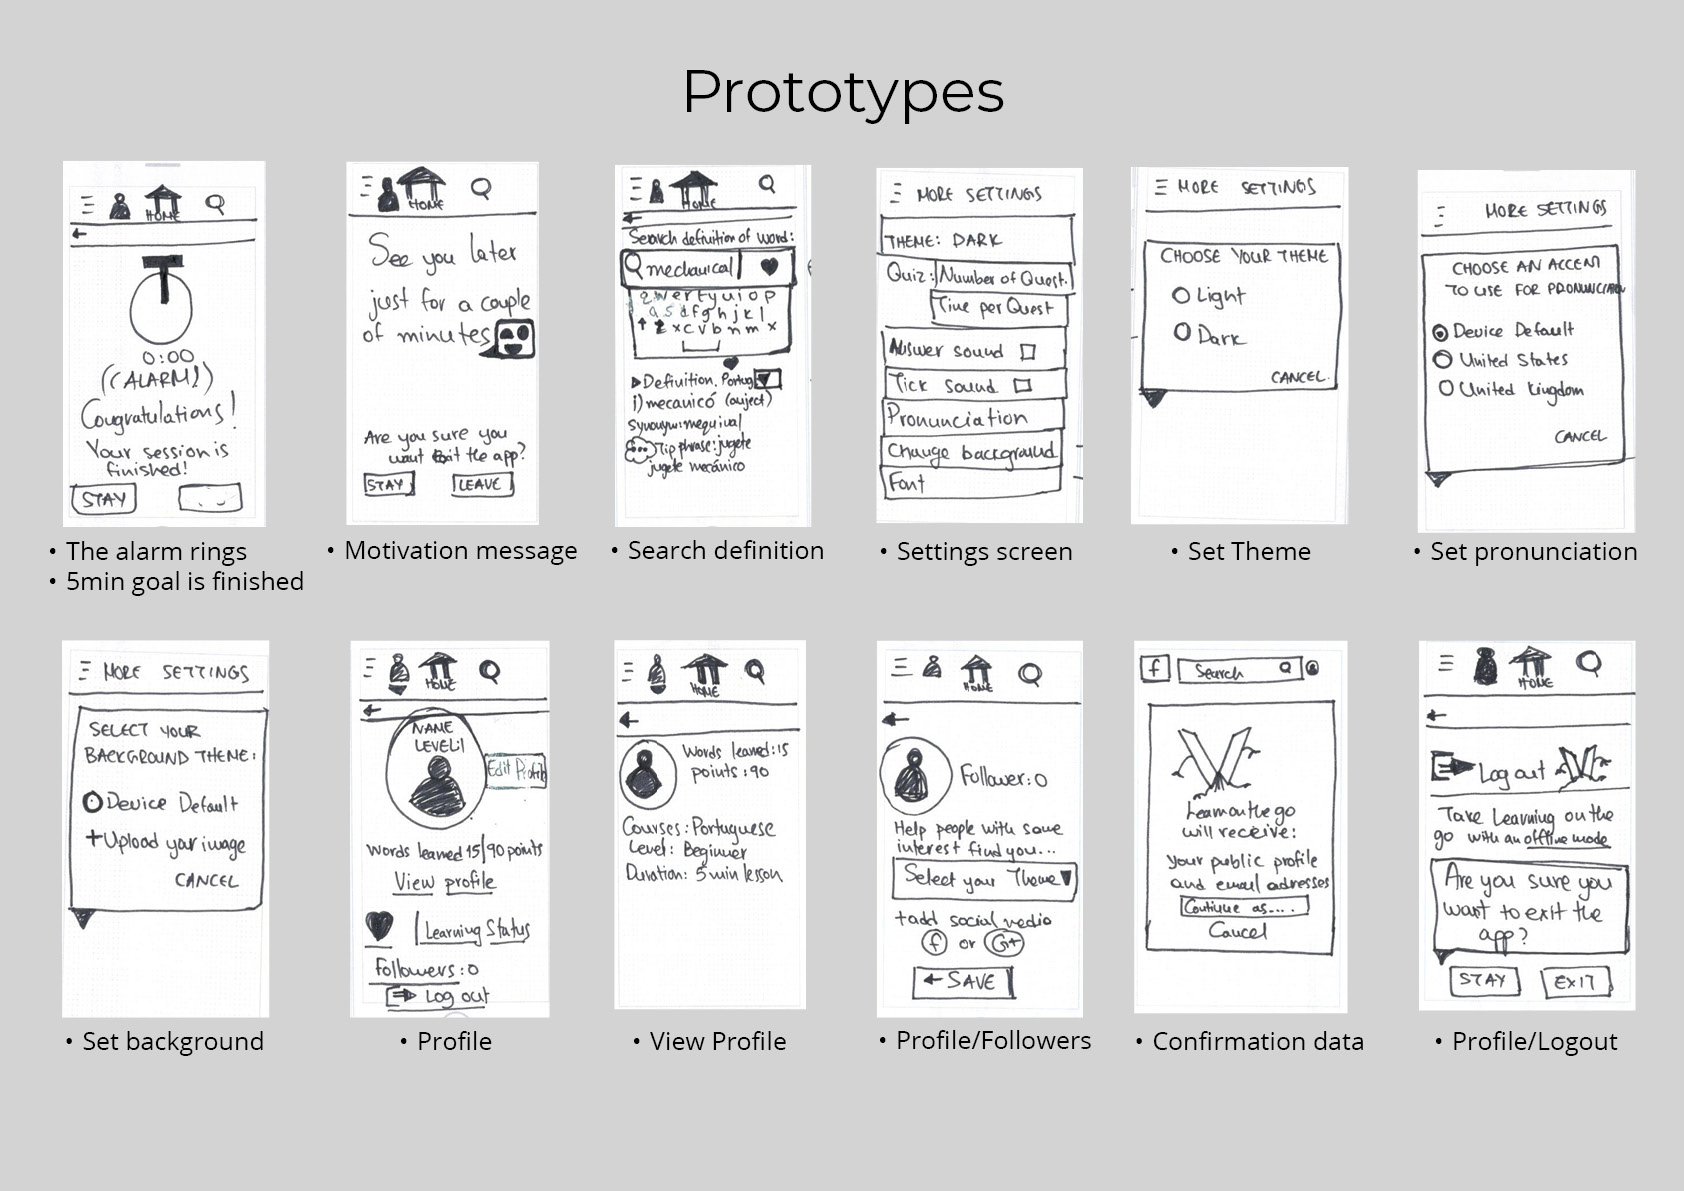 Prototypes
HOME
0:00
((ALARM))
Congratulations!
Your session is
finished!
STAY
• The alarm rings
• 5min goal is finished
HOME
See you later
just for a couple
of minutes
Are you sure you
want exit the app?
STAY
LEAVE
• Motivation message
HOME
Search definition of word:
mechanical
q w e r t y u i o p
a s d f g h j k l
z x c v b n m x
Definition. Portug
1) mecanicó (auject)
Synonym: mequival
Tip phrase: jugete
jugete mecánico
• Search definition
MORE SETTINGS
THEME: DARK
Quiz: Number of Quest.
Time per Quest
Answer sound
Tick sound
Pronunciation
Change background
Font
• Settings screen
MORE SETTINGS
CHOOSE YOUR THEME
Light
Dark
CANCEL.
• Set Theme
MORE SETTINGS
CHOOSE AN ACCENT
TO USE FOR PRONUNCIATION
Device Default
United States
United Kingdom
CANCEL
• Set pronunciation
MORE SETTINGS
SELECT YOUR
BACKGROUND THEME:
Device Default
+Upload your image
CANCEL
• Set background
HOME
NAME
LEVEL:1
Edit Profile
Words learned 15/90 points
View profile
Learning Status
Followers: 0
Log out
• Profile
HOME
Words learned: 15
points: 90
Courses: Portuguese
Level: Beginner
Duration: 5 min lesson
• View Profile
HOME
Follower: 0
Help people with same
interest find you...
Select your Theme
+add social media
f or G+
SAVE
• Profile/Followers
f
Search
Learn on the go
will receive:
your public profile
and email adresses
Continue as....
Cancel
• Confirmation data
HOME
Log out
Take Learning on the
go with an offline mode
Are you sure you
want to exit the
app?
STAY
EXIT
• Profile/Logout